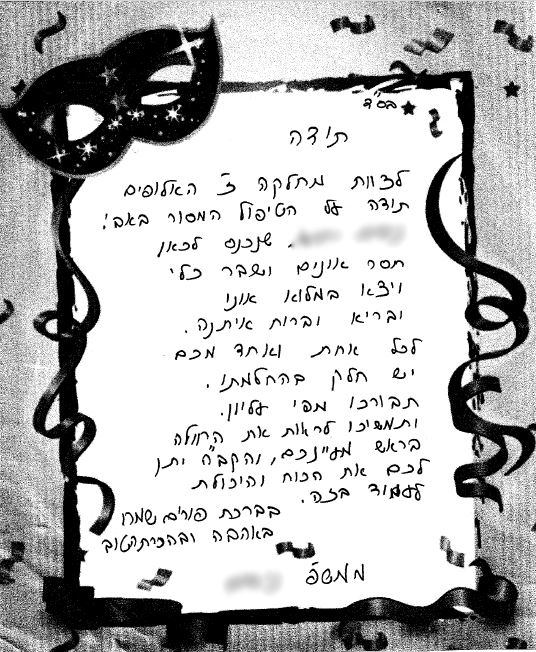 בס"ד
תודה
לצוות מחלקה כ' האלופים
תודה על הטיפול המסור באבי
שנכנס לכאן
חסר אונים ושבר כלי
ויצא במלוא אונו
ובריא וברוח איתנה.
לכל אחת ואחד מכם
יש חלק בהחלמתו.
תבורכו מפי עליון.
ותמשיכו לראות את החולה
בראש מעיינכם, והקב"ה יתן
לכם את הכוח והיכולת
לעמוד בזה.
בברכת פורים שמח
באהבה ובהכרת הטוב
ממשפ'